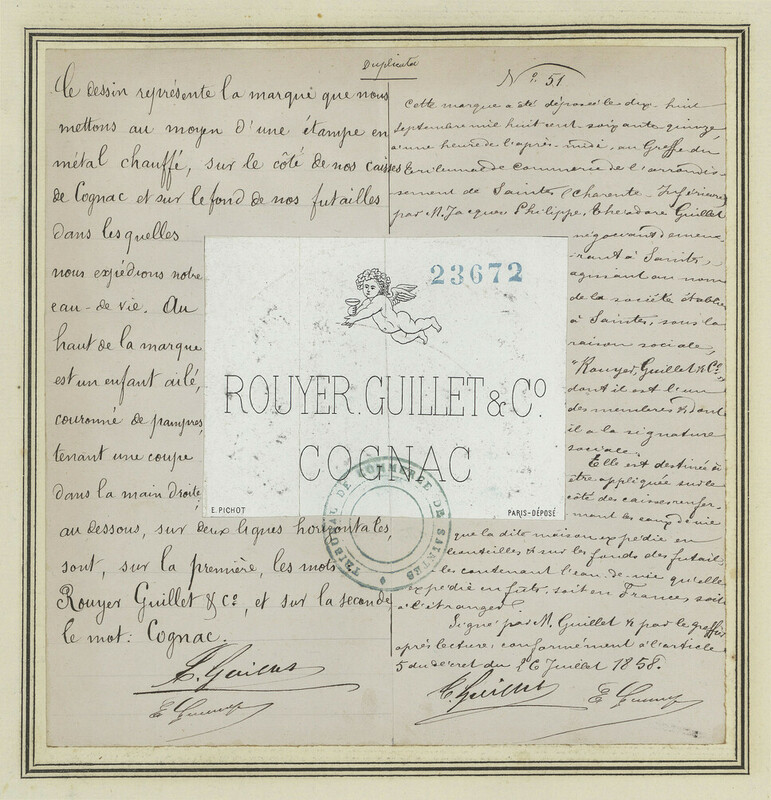 Duplicata
Le dessin représente la marque que nous
mettons au moyen d'une étampe en
métal chauffé, sur le côté de nos caisses
de Cognac et sur le fond de nos futailles
dans lesquelles
nous expédions notre
eau-de-vie. Au
haut de la marque
est un enfant ailé,
couronné de pampres,
tenant une coupe
dans la main droite;
au dessous, sur deux lignes horizontales,
sont, sur la première, les mots
Rouyer Guillet & Cº, et sur la seconde
le mot: Cognac.
Nº 51
Cette marque a été déposée le dix-huit
Septembre mil huit cent soixante quinze
à une heure de l'après-midi, au Greffe du
Tribunal de Commerce de l'arrondis-
sement de Saintes (Charente-Inférieure)
par M. Jacques Philippe Théodore Guillet
négociant demeu-
rant à Saintes,
agissant au nom
de la société établie
à Saintes, sous la
raison sociale,
"Rouyer, Guillet & Cº,"
dont il est l'un
des membres & dont
il a la signature
sociale.
Elle est destinée à
être appliquée sur le
côté des caisses renfer-
mant les eaux de vie
que la dite maison expédie en
bouteilles & sur les fonds des futail-
les contenant l'eau-de-vie qu'elle
expédie en fûts, soit en France, soit
à l'étranger.
Signé par M. Guillet & par le greffier
après lecture, conformément à l'article
5 du décret du 26 Juillet 1858.
23672
ROUYER.GUILLET & Cº.
COGNAC
E. PICHOT
PARIS-DÉPOSÉ
TRIBUNAL DE COMMERCE DE SAINTES